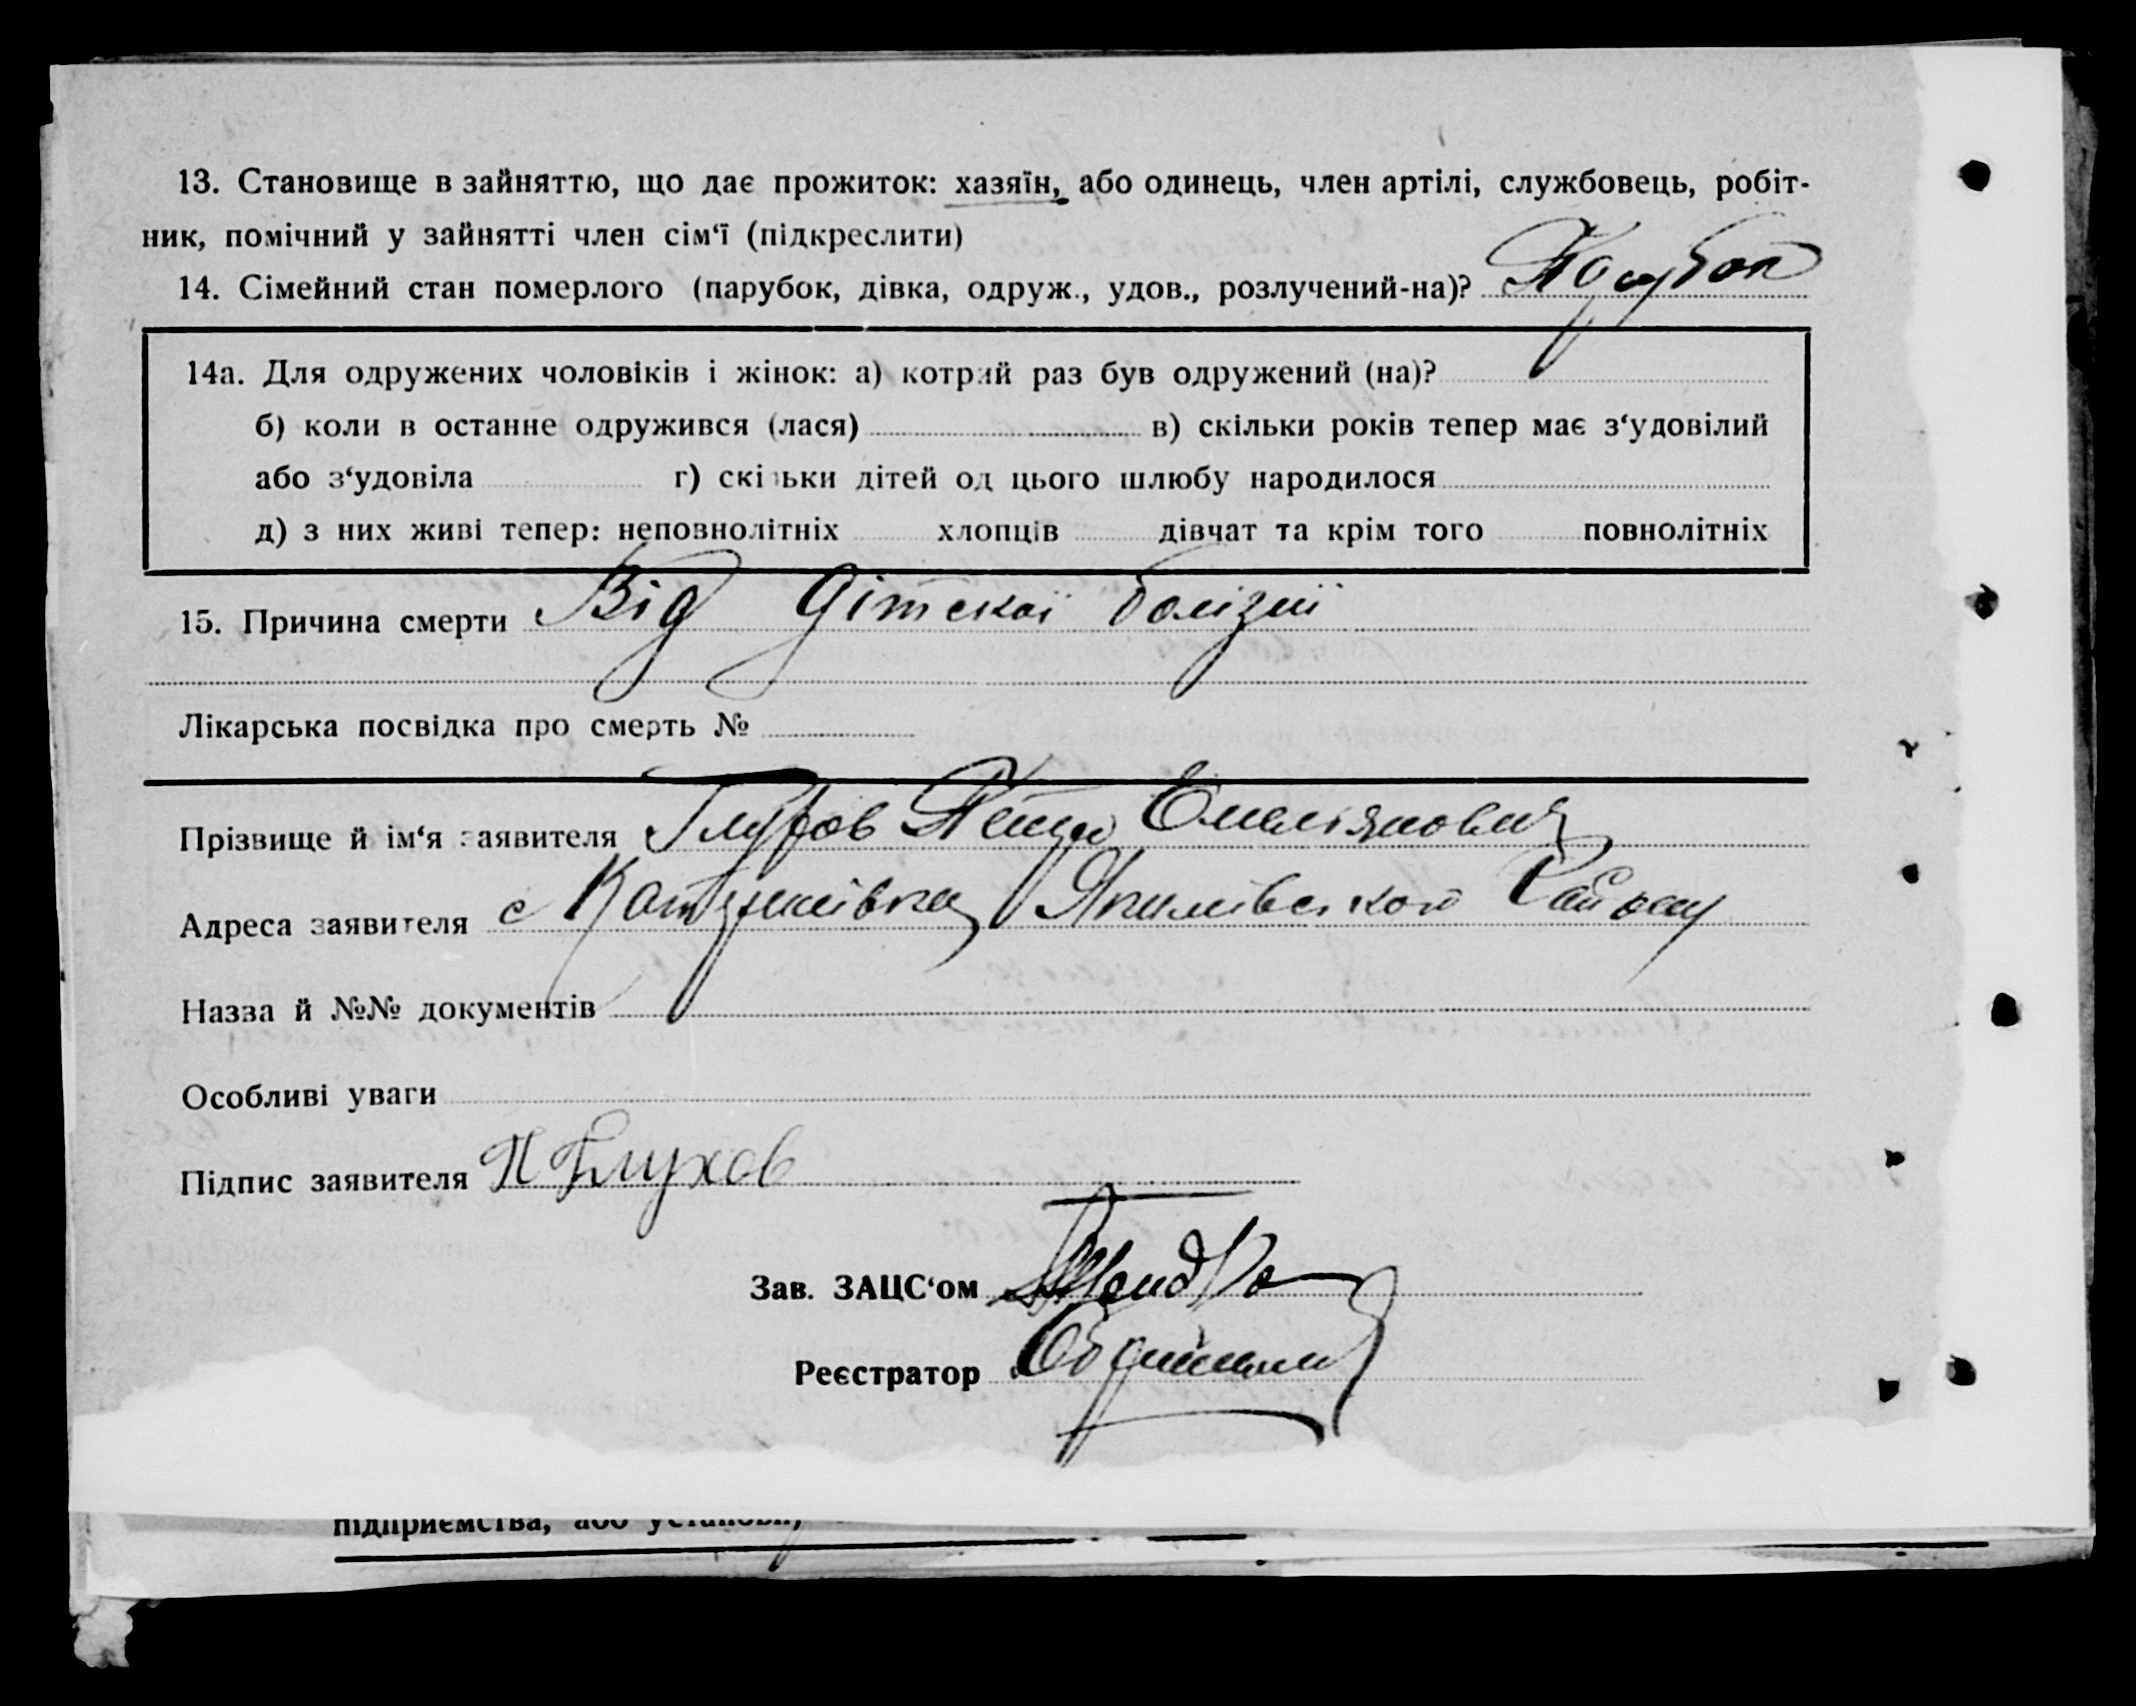 13. Становище в зайняттю, що дає прожиток: хазяїн, або одинець, член артілі, службовець, робіт-
ник, помічний у зайнятті член сім‘ї (підкреслити)
14. Сімейний стан померлого (парубок, дівка, одруж., удов., розлучений-на)? Парубок
14а. Для одружених чоловіків і жінок: а) котрий раз був одружений (на)?
б) коли в останне одружився (лася) в) скільки років тепер має з‘удовілий
або з‘удовіла г) скільки дітей од цього шлюбу народилося
д) з них живі тепер: неповнолітніх хлопців дівчат та крім того повнолітніх
15. Причина смерти Від дітской болізні
Лікарська посвідка про смерть №
Прізвище й ім‘я заявителя Глухов Петро Омелянович
Адреса заявителя с Якимівського Району
Назва й №№ документів
Особливі уваги
Підпис заявителя П Глухов
Зав. ЗАЦС‘ом
Реєстратор
підприємства, або установи,